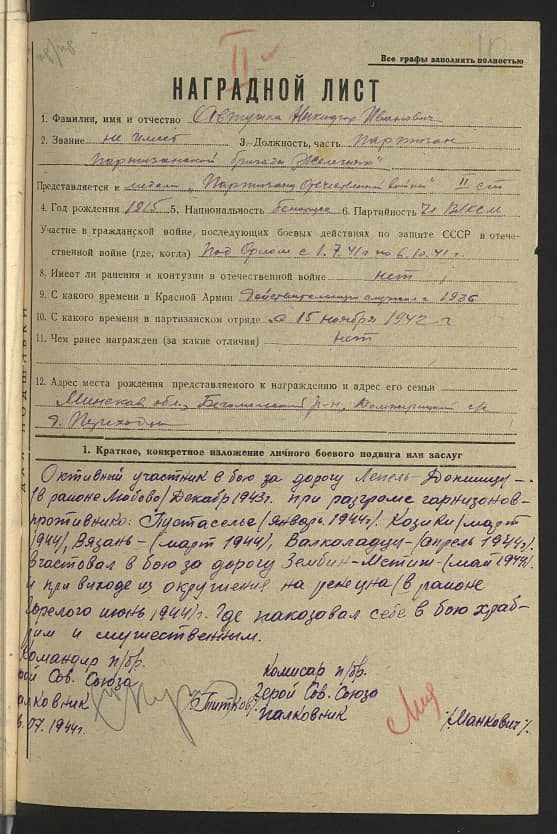 II
Все графы заполнять полностью
НАГРАДНОЙ ЛИСТ
1. Фамилия, имя и отчество Автушка Никифор Иванович
2. Звание не имеет 3. Должность, часть партизан
партизанской бригады "Железняк"
Представляется к медали "Партизану Отечественной войны" II ст
4. Год рождения 1915 5. Национальность белорусс 6. Партийность Чл ВЛКСМ
Участие в гражданской войне, последующих боевых действиях по защите СССР в отече-
ственной войне (где, когда) Под Орлом с 1.7.41г по 6.10.41г.
8. Имеет ли ранения и контузии в отечественной войне нет
9. С какого времени в Красной Армии Действительную служил с 1936
10. С какого времени в партизанском отряде с 15 ноября 1942 г
11. Чем ранее награжден (за какие отличия) нет
12. Адрес места рождения представляемого к награждению и адрес его семьи
Минская обл., Бегомльский р-н, с/с
д. Переходцы
1. Краткое, конкретное изложение личного боевого подвига или заслуг
Октивный участник в бою за дорогу Лепель-Докшицы-
(в районе Любово/Декабр 1943г. при разгроме гарнизонов-
противнико: Пустаселье/январь 1944г/. Козики/март
1944/, Вязань-(март 1944), Валкаладцы-/апрель 1944г.
Участвовал в бою за дорогу Зембин-Мстиж-(май 1944г.
и при виходе из окружения на /в районе
Горелого июнь 1944/г. Где показовал себе в бою храб-
рим и мужественным.
Командир п/бр. Комисар п/бр.
рой Сов. Союза Герой Сов. Союза
палковник /Титков/. палковник /Манкович/.
.07.1944г.
ДЛЯ ПОДШИВКИ